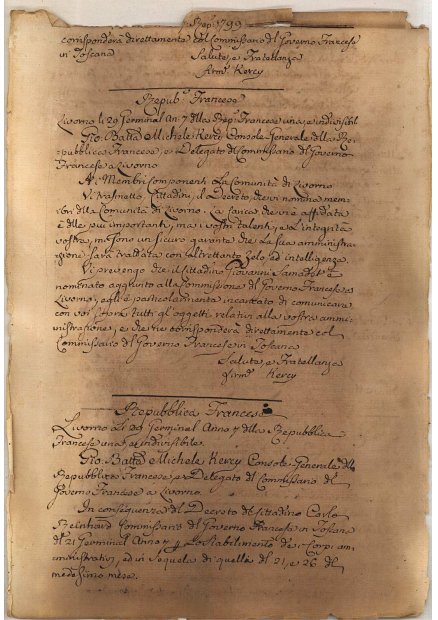 1799
corrisponderà direttamente col Commissario del Governo Francese
in Toscana Salute, e Fratellanza
Firm. Kercy
Repub. Francese
Livorno li 29 Germinal An. 7 della Rep. Francese una, e indivisibil
Gio. Batta e Michele Kercy Console Generale della Re-
pubblica Francese, e Delegato del Commissario del Governo
Francese a Livorno
Ai Membri Componenti La Comunità di Livorno
Vi trasmetto Cittadini, il Decreto, che vi nomina mem-
bri della Comunità di Livorno. La carica che vi è affidata
è delle più importanti, ma i vostri talenti, e L'integrità
vostra, mi sono un sicuro garante che La sua amministra-
zione sarà trattata con altrettanto zelo, ed intelligenza.
Vi prevengo che il Cittadino Giovanni è
nominato aggiunto alla Commissione del Governo Francese a
Livorno, egli è particolarmente incaricato di comunicare
con voi sopra tutti gl'oggetti relativi alla vostra ammi-
nistrazione, e che vi corrisponderà direttamente col
Commissario del Governo Francese in Toscana
Salute, e Fratellanza
Firm. Kercy
Repubblica Francese
Livorno li 30 Germinal Anno 7 della Repubblica
Francese una, ed indivisibile.
Gio. Batta e Michele Kercy Console Generale della
Repubblica Francese, e Delegato del Commissario del
Governo Francese a Livorno.
In conseguenza del Decreto del Cittadino Carlo
Reinhard Commissario del Governo Francese in Toscana
del 21 Germinal Anno 7 p. Lo stabilimento de' Corpi am-
ministrativi, ed in sequela di quelli del 21, e 26 del
medesimo mese.